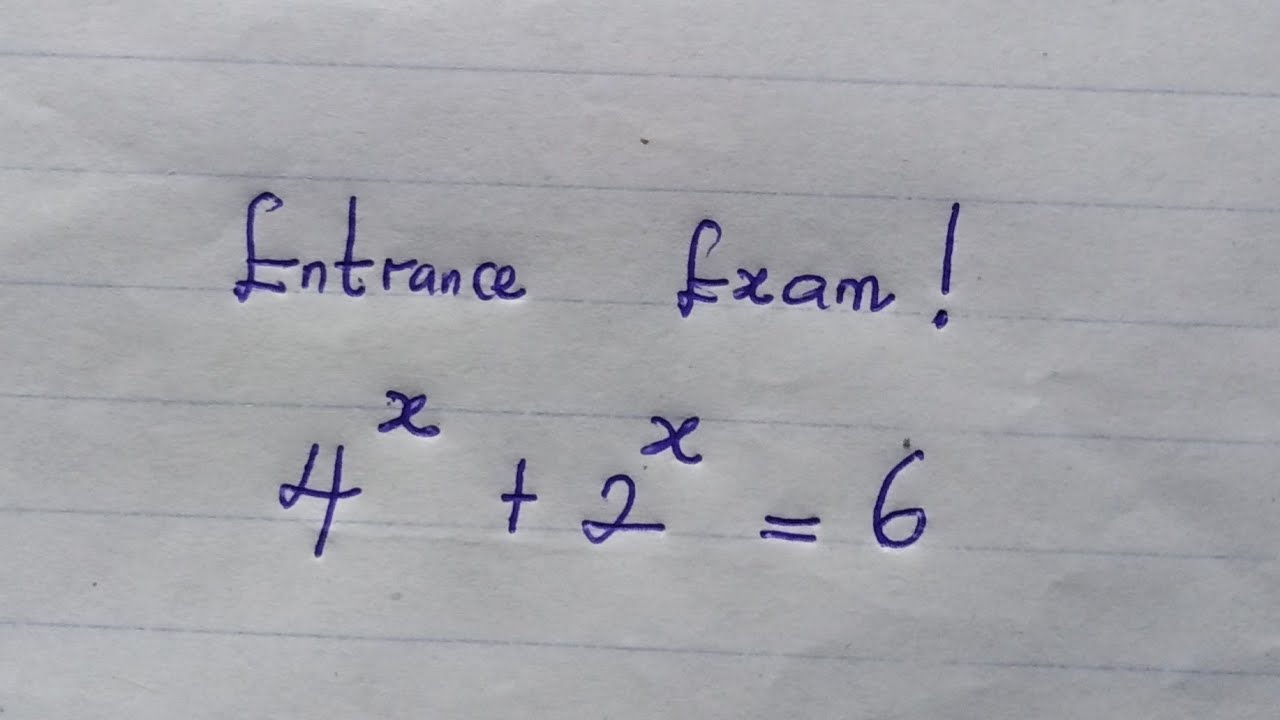 Entrance Exam!
4^x + 2^x = 6